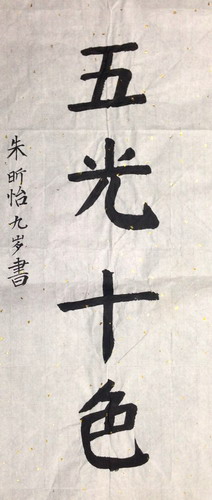 五光十色
朱昕怡九岁書